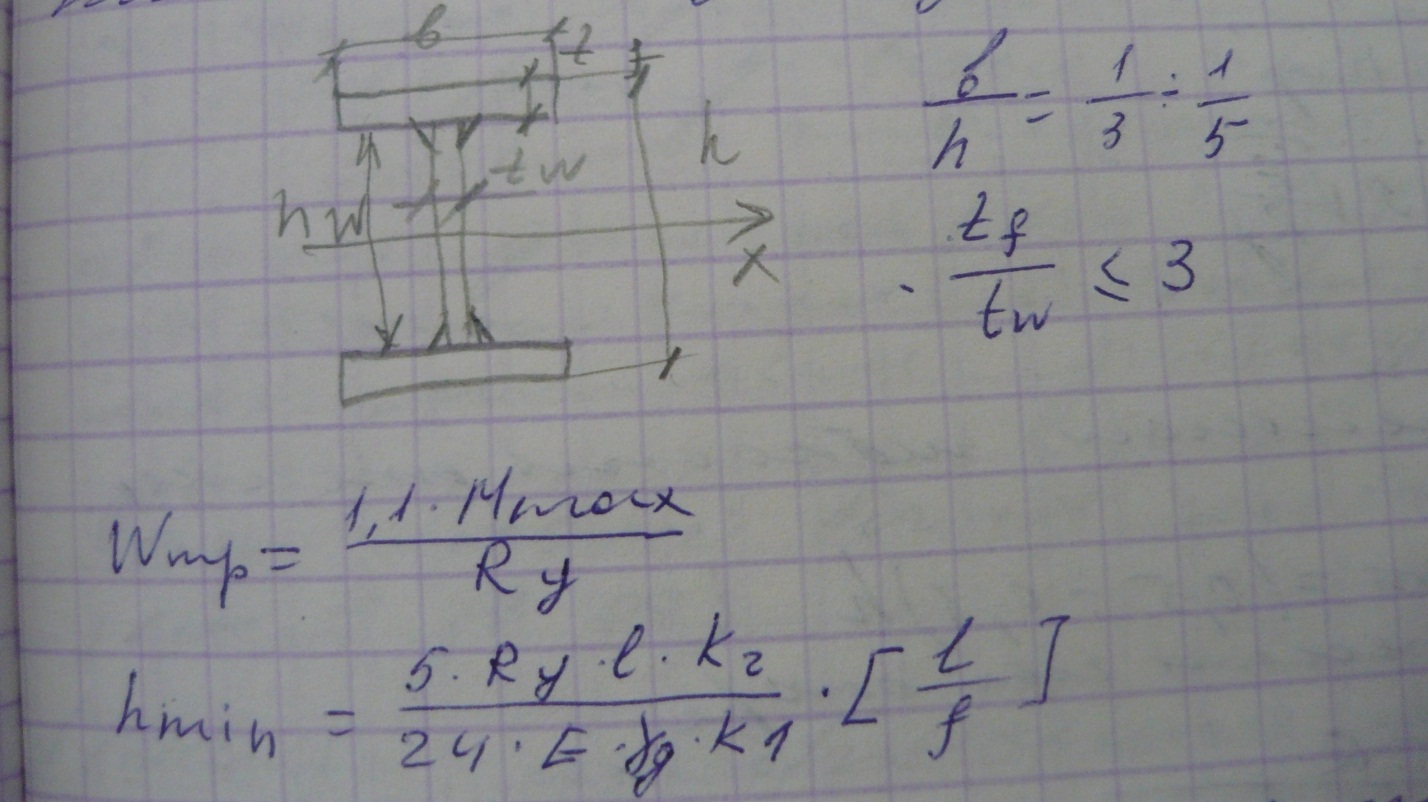 b
t
h
tw
hw
x
b/h = 1/3 ÷ 1/5
tf/tw ≤ 3
Wтр = 1,1 · Mmax / Ry
hmin = 5 · Ry · l · K2 / 24 · E · γg · K1 · [l/f]